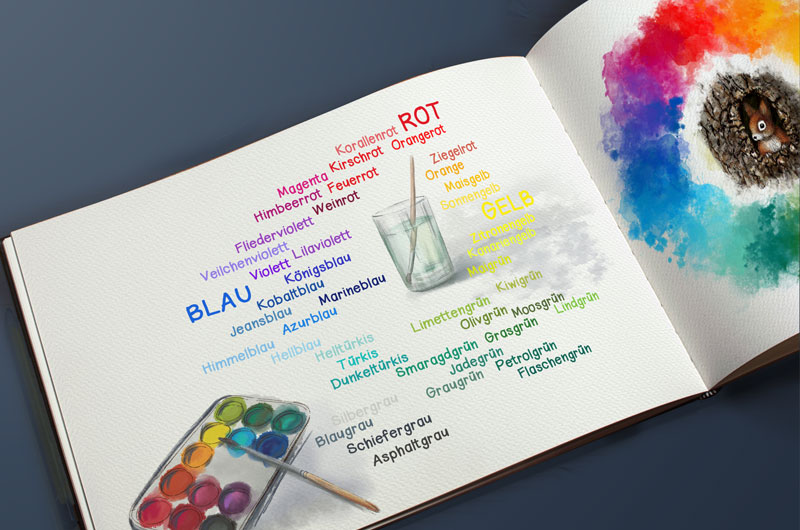 ROT
Korallenrot
Orangerot
Kirschrot
Magenta
Feuerrot
Himbeerrot
Weinrot
Ziegelrot
Orange
Maisgelb
Sonnengelb
GELB
Zitronengelb
Kanariengelb
Maigrün
Fliederviolett
Veilchenviolett
Violett Lilaviolett
Königsblau
BLAU
Kobaltblau
Marineblau
Jeansblau
Azurblau
Himmelblau
Hellblau
Helltürkis
Türkis
Dunkeltürkis
Kiwigrün
Limettengrün
Olivgrün
Moosgrün
Lindgrün
Smaragdgrün
Grasgrün
Jadegrün
Petrolgrün
Graugrün
Flaschengrün
Silbergrau
Blaugrau
Schiefergrau
Asphaltgrau